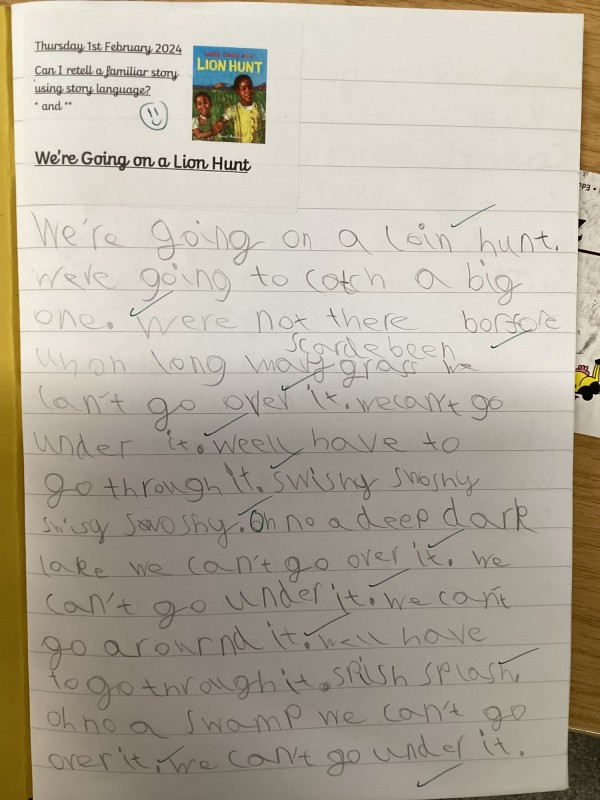 Thursday 1st February 2024
Can I retell a familiar story
using story language?
* and **
LION HUNT
We're Going on a Lion Hunt
We're going on a loin hunt.
we're going to catch a big
one. Were not there borfore
scarde been
uhoh long wavy grass we
can't go over it. we can't go
under it. weell have to
go through it. Swishy swoshy
swisy swoshy. Oh no a deep dark
lake we can't go over it. we
can't go under it. we can't
go arournd it. well have
to go through it. splish splash.
oh no a swamp we can't go
over it. we can't go under it.